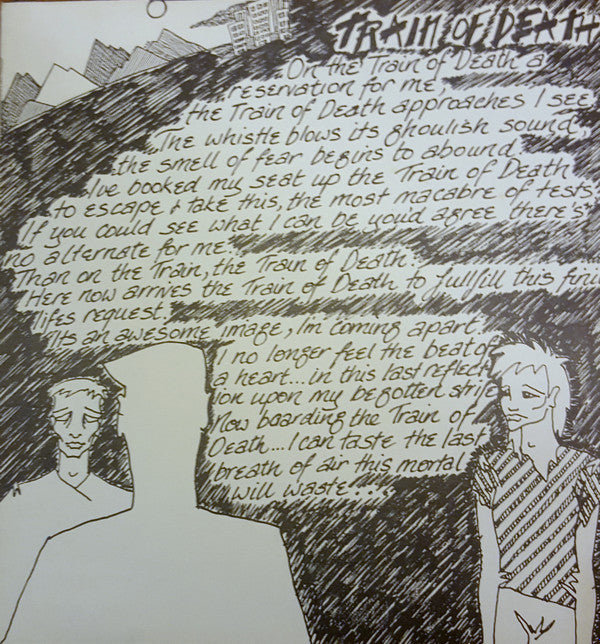 TRAIN OF DEATH
On the Train of Death a
reservation for me,
the Train of Death approaches I see
The whistle blows its ghoulish sound,
the smell of fear begins to abound.
I've booked my seat up the Train of Death
to escape & take this, the most macabre of tests
If you could see what I can be you'd agree there's
no alternate for me.
Than on the Train, the Train of Death.
Here now arrives the Train of Death to fullfill this fini
lifes request.
Its an awesome image, i'm coming apart.
I no longer feel the beat of
a heart... in this last reflect
ion upon my begotten strife
Now boarding the Train of
Death... I can taste the last
breath of air this mortal
will waste...